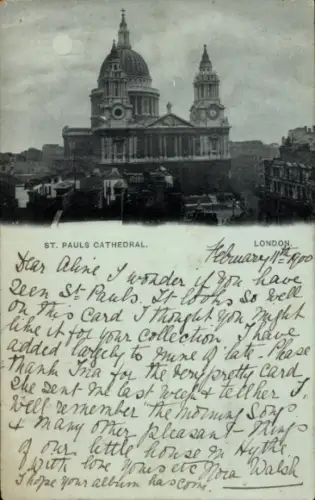 ST. PAULS CATHEDRAL. LONDON.
February 11th 1900
Dear Aline I wonder if you have
seen St. Pauls. It looks so well
on this card I thought you might
like it for your collection. I have
added largely to mine of late. Please
thank Ina for the very pretty card
she sent me last week & tell her I
well remember "the morning Song"
& many other pleasant things
of our little house in Hythe.
With love Yours etc Nora Walsh
I hope your album has come.